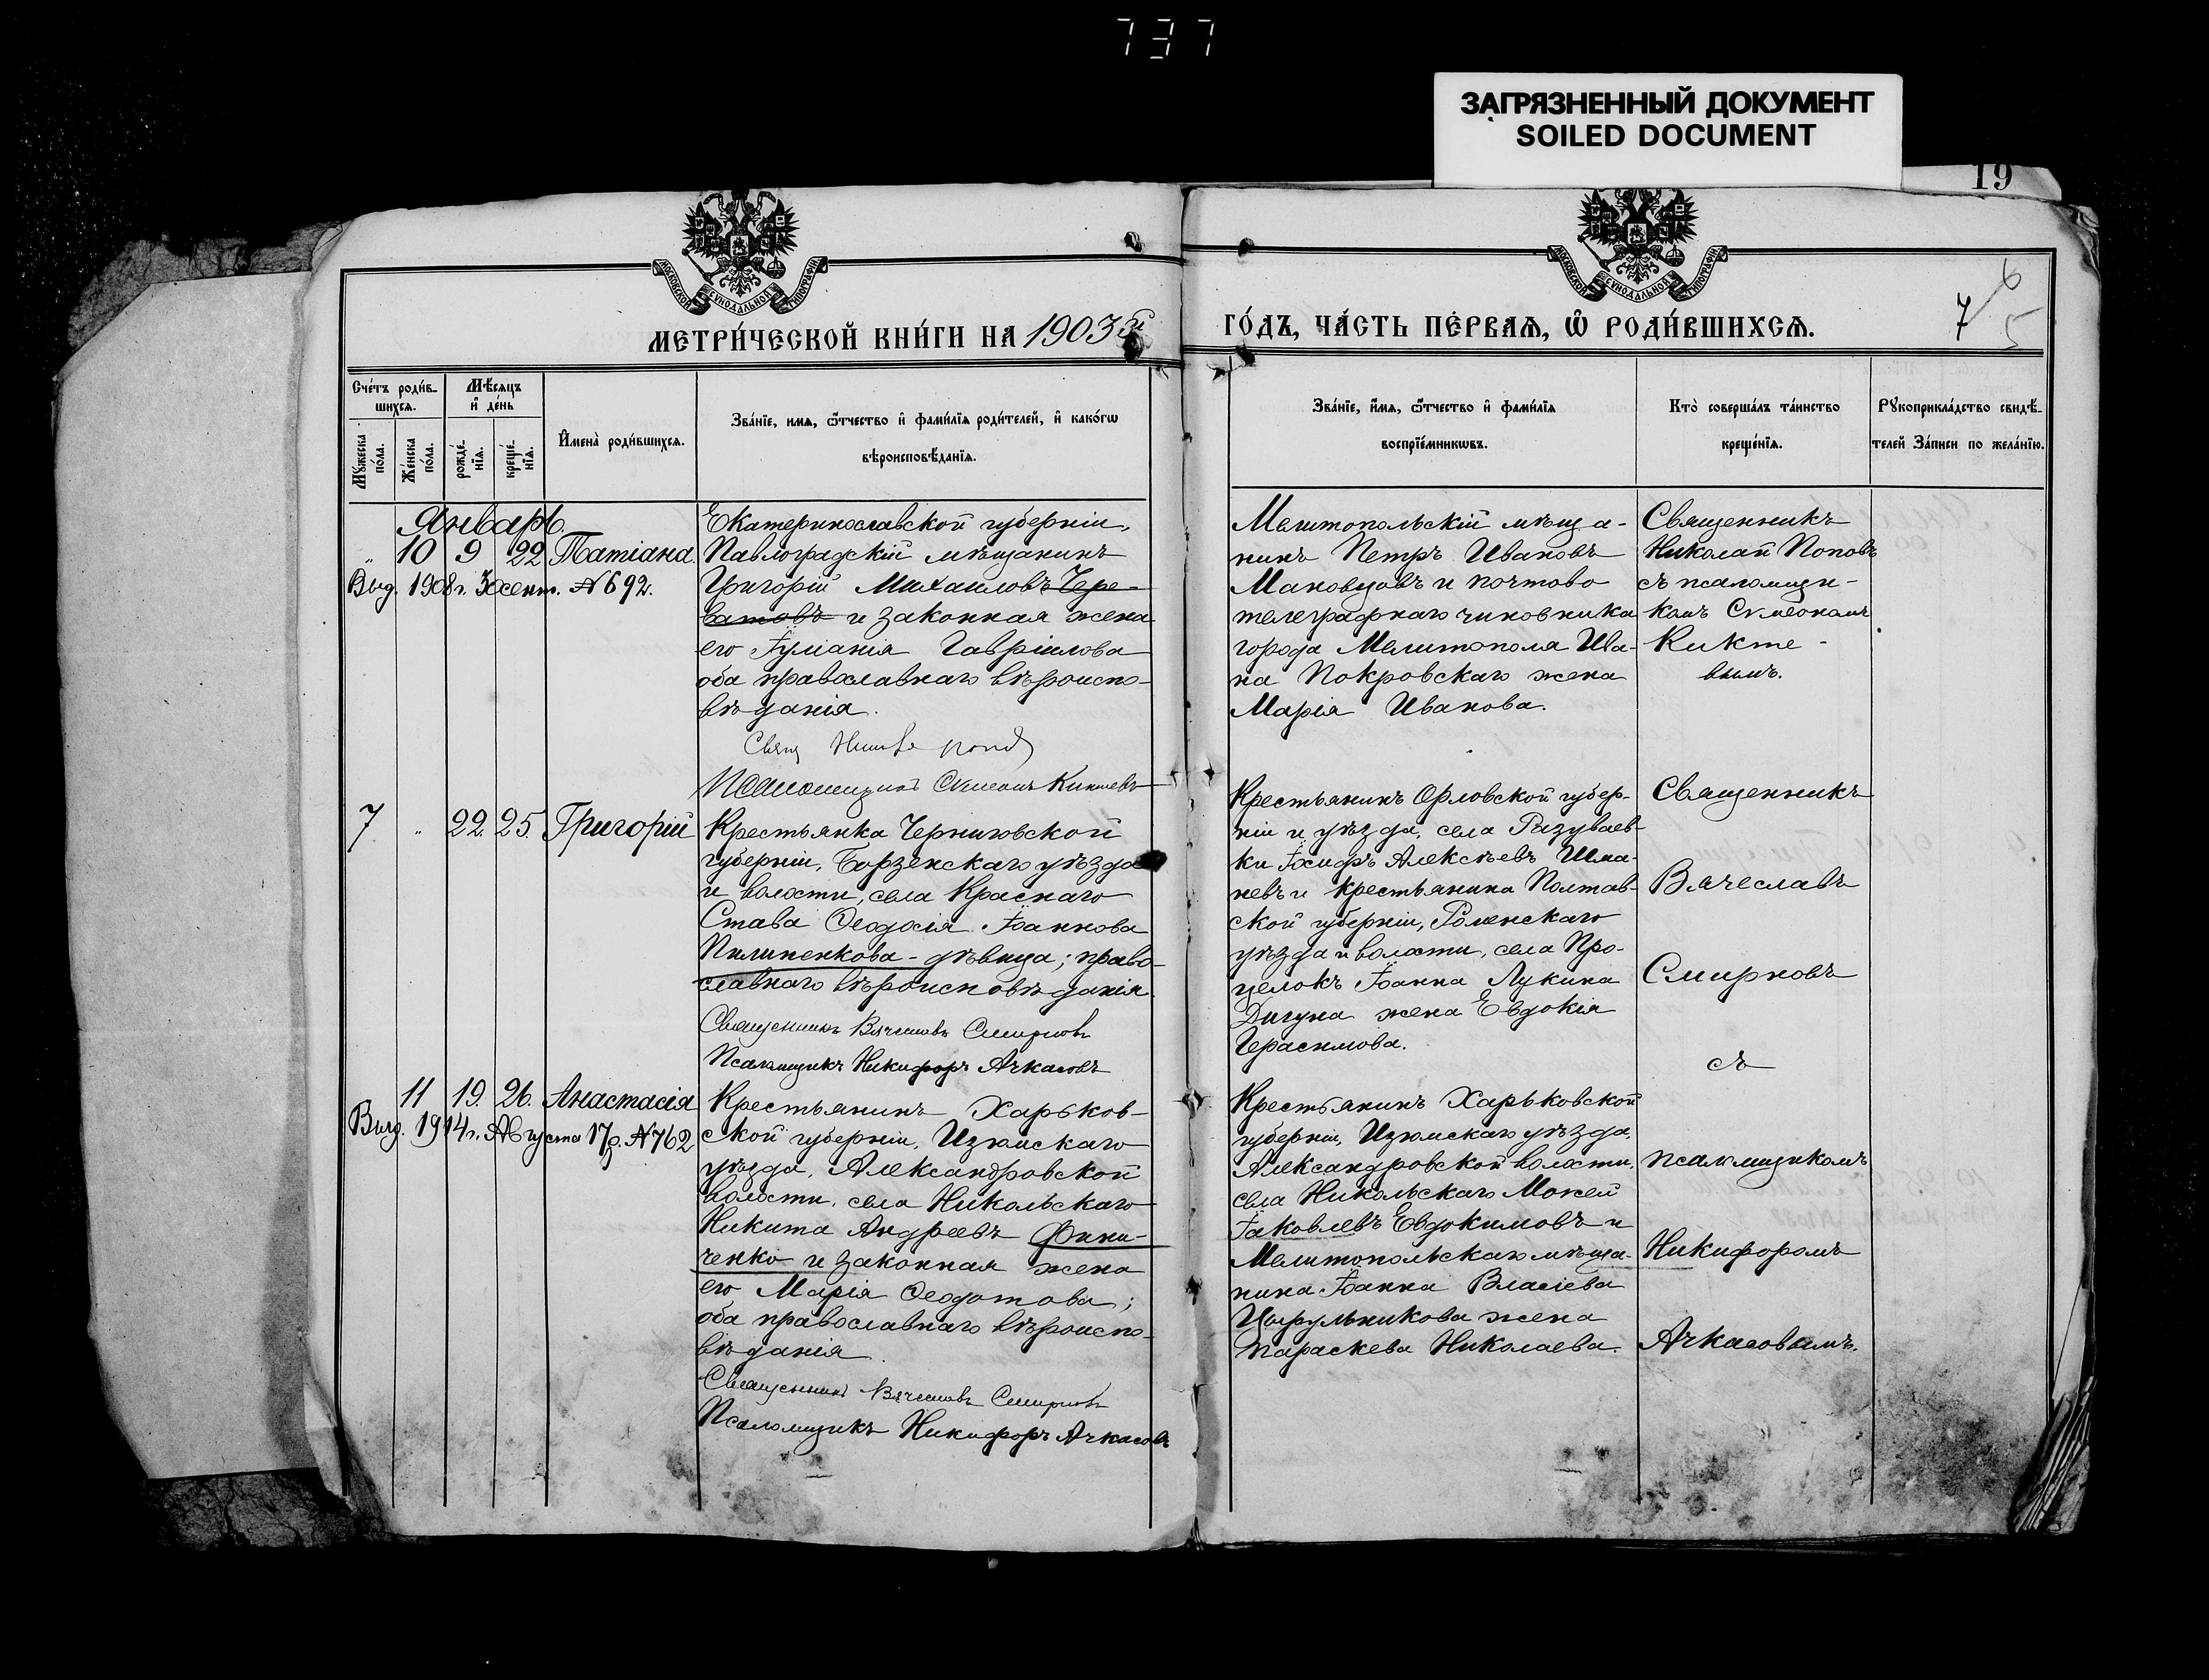 737
ЗАГРЯЗНЕННЫЙ ДОКУМЕНТ
SOILED DOCUMENT
19
МОСКОВСКОЙ СѴНОДАЛЬНОЙ ТИПОГРАФІИ
МОСКОВСКОЙ СѴНОДАЛЬНОЙ ТИПОГРАФІИ
МЕТРИ́ЧЕСКОЙ КНИ́ГИ НА 1903й
ГО́ДЪ, ЧА́СТЬ ПЕ́РВАѦ, Ѡ҆ РОДИ́ВШИХСѦ.
7
6
5
Сче́тъ роди́в-
шихсѧ.
Мѣ́сѧцъ
и҆ де́нь
Мꙋ́жеска
по́ла.
Же́нска
по́ла.
рожде́-
нїѧ.
креще́-
нїѧ.
И҆мена̀ роди́вшихсѧ.
Зва́нїе, имѧ, ѻ҆́тчество и҆ фами́лїѧ роди́телей, и҆ како́гѡ
вѣроисповѣ́данїѧ.
Зва́нїе, и҆́мѧ, ѻ҆́тчество и҆ фами́лїѧ
воспрїе́мникѡвъ.
Кто̀ соверша́лъ та́инство
креще́нїѧ.
Рꙋкоприкла́дство свидѣ́-
телей За́писи по жела́нїю.
Январь.
" 10 9 22 Татіана.
Выд. 1908 г. 3 сент. № 692.
Екатеринославской губерніи,
Павлоградскій мѣщанинъ
Григорій Михаиловъ Чере-
ватовъ и законная жена
его Іуліанія Гавріилова
оба православнаго вѣроиспо-
вѣданія.
Свящ Никол Попов
Псаломщикъ Симеонъ Киктевъ
Мелитопольскій мѣща-
нинъ Петръ Ивановъ
Маковцовъ и почтово
телеграфнаго чиновника
города Мелитополя Ива-
на Покровскаго жена
Марія Иванова.
Священникъ
Николай Поповъ
съ псаломщи-
комъ Симеономъ
Кикте-
вымъ.
7 " 22 25. Григорій
Крестьянка Черниговской
губерніи, Борзенскаго уѣзда
и волости, села Краснаго
Става Ѳеодосія Іоаннова
Пилипенкова - дѣвица; право-
славнаго вѣроисповѣданія.
Священникъ Вячеславъ Смирновъ
Псаломщикъ Никифоръ Ачкасовъ
Крестьянинъ Орловской губер-
ніи и уѣзда, села Разуваев-
ки Іосифъ Алексѣевъ Шма-
невъ и крестьянина Полтав-
ской губерніи, Роменскаго
уѣзда и волости, села Про-
целокъ Іоанна Лукина
Дигуна жена Евдокія
Герасимова.
Священникъ
Вячеславъ
Смирновъ
съ
псаломщикомъ
Никифоромъ
Ачкасовымъ.
11 19. 26. Анастасія
Выд. 1914 г. Августа 17 д. № 762
Крестьянинъ Харьков-
ской губерніи, Изюмскаго
уѣзда, Александровской
волости, села Никольскаго
Никита Андреевъ Фини-
ченко и законная жена
его Марія Ѳеодотова;
оба православнаго вѣроиспо-
вѣданія.
Священникъ Вячеславъ Смирновъ
Псаломщикъ Никифоръ Ачкасовъ
Крестьянинъ Харьковской
губерніи, Изюмскаго уѣзда,
Александровской волости,
села Никольскаго Моисей
Іаковлевъ Евдокимовъ и
Мелитопольскаго мѣща-
нина Іоанна Власіева
Цырульникова жена
Параскева Николаева.